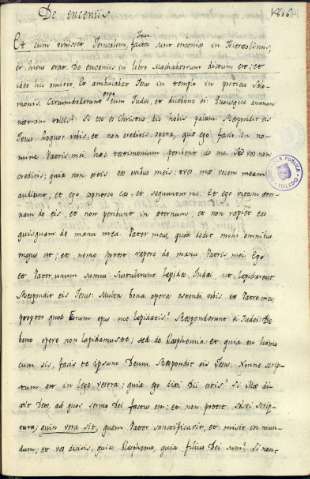 De encenijs
Et cum venisset Jerusalem, facta sunt encenia in Hierosolimis,
et hiems erat. De encenijs in libro Machabeorum dictum est, et
ideo hic Et ambulabat Jesus in templo in porticu Salo-
monis. Circumdederunt ergo eum Judei, et dicebant ei Quousque animam
nostram tollis? Si tu es Christus dic nobis palam. Respondit eis
Jesus loquor vobis, et non creditis, opera, que ego facio in no-
mine Patris mei hec testimonium perhibent de me. Sed vos non
creditis; quia non estis ex ovibus meis; oves mee vocem meam
audiunt; et ego cognosco eas et sequuntur me. Et ego vitam eter-
nam do eis et non peribunt in eternum et non rapiet eas
quisquam de manu mea. Pater meus quod dedit mihi omnibus
maius est; et nemo potest rapere de manu Patris mei Ego
et Pater unum sumus Sustulerunt lapides Judei ut lapidarent
Respondit eis Jesus. Multa bona opera ostendi vobis ex Patre meo
propter quod eorum opus me lapidatis? Responderunt ei Judei De
bono opere non lapidamus te, sed de Blasphemia et quia tu homo
cum sis, facis te ipsum Deum Respondit eis Jesus. Nonne scrip-
tum est in lege vestra; quia ego dixi Dij estis? Si illos di-
xit Deos, ad quos sermo Dei factus est; et non potest solvi scrip-
tura; quem Pater sanctificavit, et misit in mun-
dum, et vos dicitis, quia Blasphemo, quia filius Dei sum? Si non